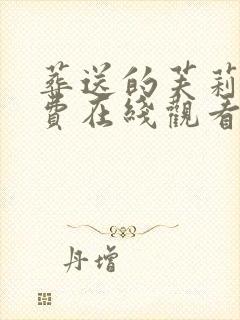 葬送的芙莉
費在綫觀看
丹增